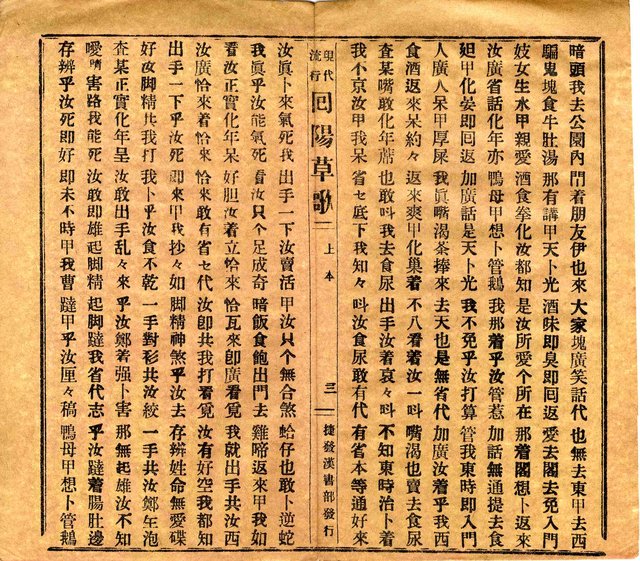 暗頭我去公園內 門着朋友伊也來 大家塊廣笑話代 也無去東甲去西
騙鬼塊食牛肚湯 那有講甲天卜光 酒味即臭即囘返 愛去閣去免入門
妓女生水甲親愛 酒食拳化汝都知 是汝所愛个所在 那着閣想卜返來
汝廣省話化年亦 鴨母甲想卜管鵝 我那着乎汝管惹 加話無通提去食
廻甲化晏即囘返 加廣話是天卜光 我不免乎汝打算 管我東時即入門
人廣人呆甲厚屎 我眞嘴渴茶捧來 去天也是無省代 加廣汝着乎我西
食酒返來呆約々 返來爽甲化巢着 不八看着汝一㕭 嘴渴也賣去食尿
査某嘴敢化年蔗 也敢㕭我去食尿 出手汝着哀々㕭 不知東時治卜着
我不京汝甲我呆 省乜底下我知々 㕭汝食尿敢有代 有省本等通好來
現代流行 囘陽草歌 上本 三 捷發漢書部發行
汝眞卜來氣死我 出手一下汝賣活 甲汝只个無合煞 蛤仔也敢卜逆蛇
我眞乎汝能氣死 看汝只个足成奇 暗飯食飽出門去 雞啼返來甲我如
看汝正實化年呆 好胆汝着立恰來 恰瓦來即廣看覓 我就出手共汝西
汝廣恰來着恰來 恰來敢有省乜代 汝即共我打看覓 汝有好空我都知
出手一下乎汝死 即來甲我抄々如 脚精神煞乎汝去 存辨姓命無愛碟
好汝脚精共我打 我卜乎汝食不乾 一手對髟共汝絞 一手共汝鄭年泡
査某正實化年呈 汝敢出手乱々來 乎汝鄭着强卜害 那無起雄汝不知
噯唷害路我能死 汝敢即雄起脚精 起脚躂我省代志 乎汝躂着腸肚邊
存辨乎汝死即好 即未不時甲我曹 躂甲乎汝厘々稿 鴨母甲想卜管鵝